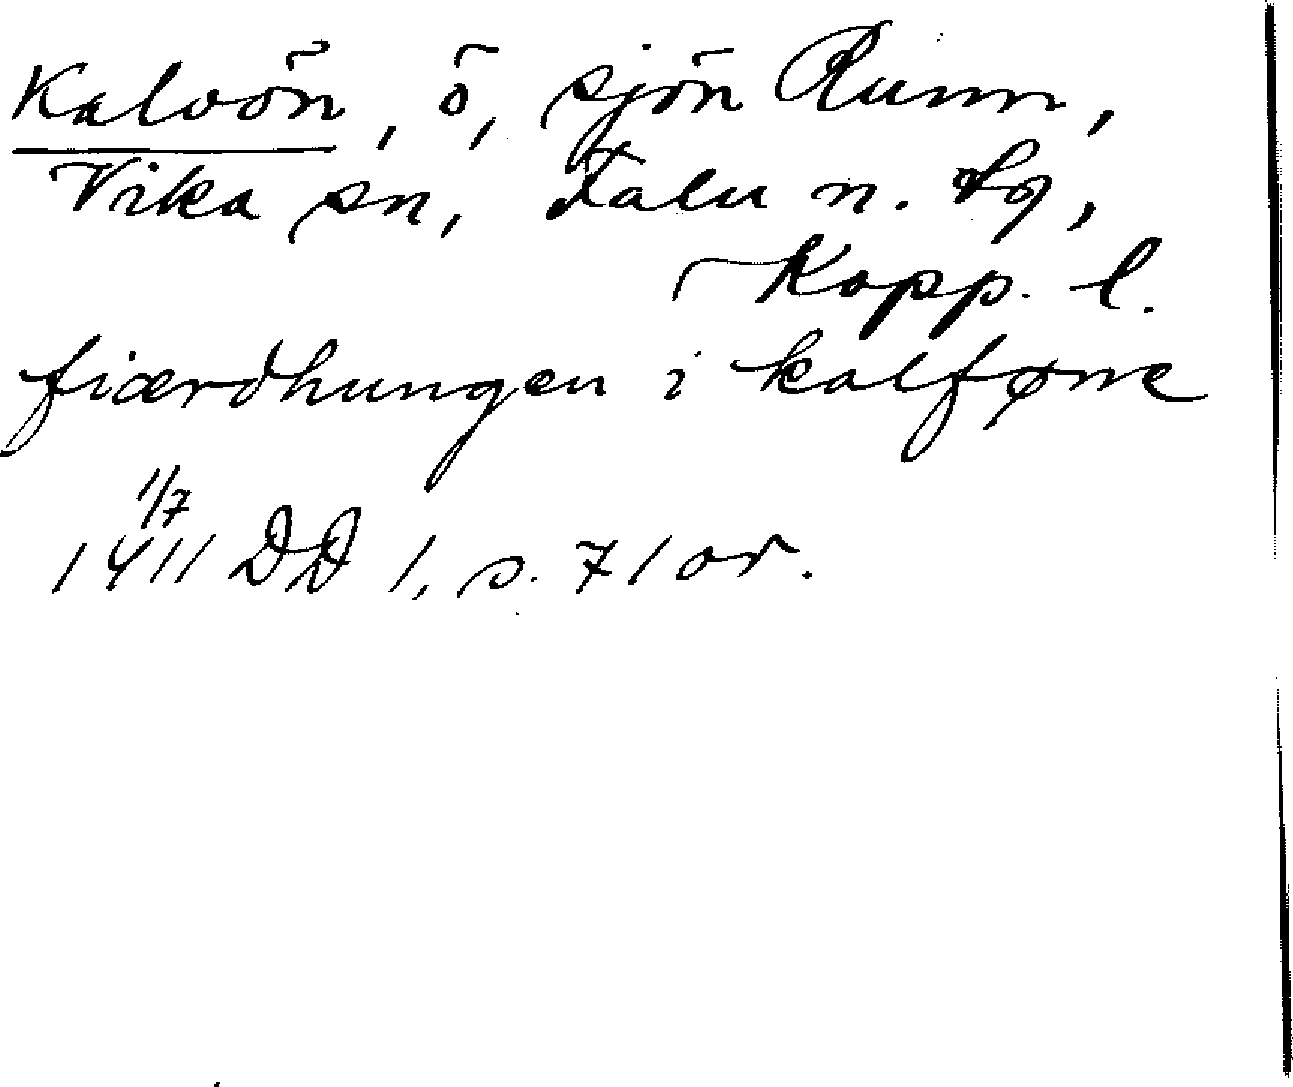 Kalvön, ö, sjön Runn,
Vika sn, Falu n. tg,
Kopp. l.
fiærdhungen i kalføne
1/7
1411 DD 1, s. 71 or.